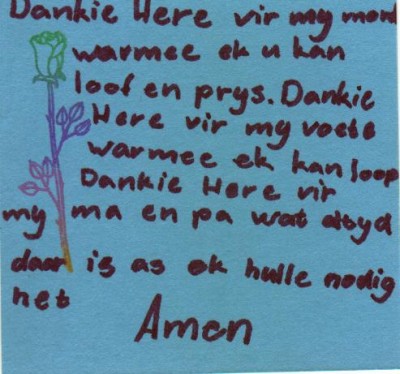 Dankie Here vir my mond
warmee ek u kan
loof en prys. Dankie
Here vir my voete
warmee ek kan loop
Dankie Here vir
my ma en pa wat altyd
daar is as ek hulle nodig
het
Amen